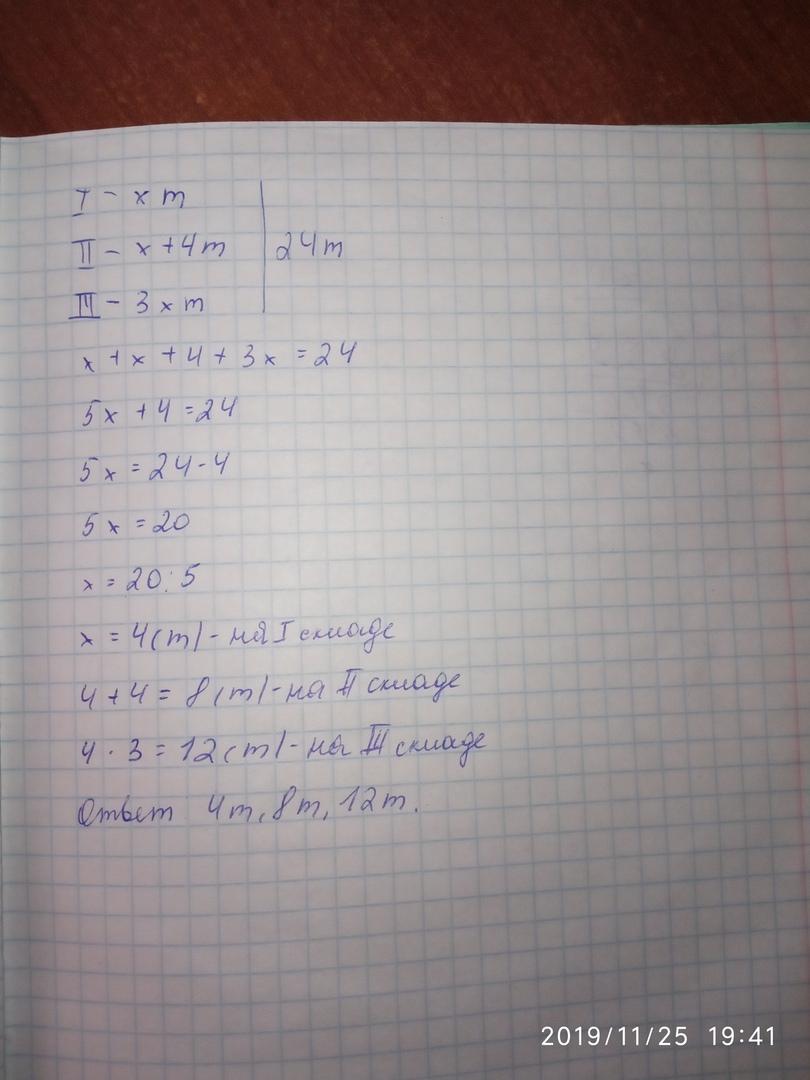 I - x т
II - x + 4 т
24 т
III - 3 x т
x + x + 4 + 3x = 24
5x + 4 = 24
5x = 24 - 4
5x = 20
x = 20 : 5
x = 4 (т) - на I складе
4 + 4 = 8 (т) - на II складе
4 · 3 = 12 (т) - на III складе
Ответ 4 т, 8 т, 12 т.
2019/11/25 19:41